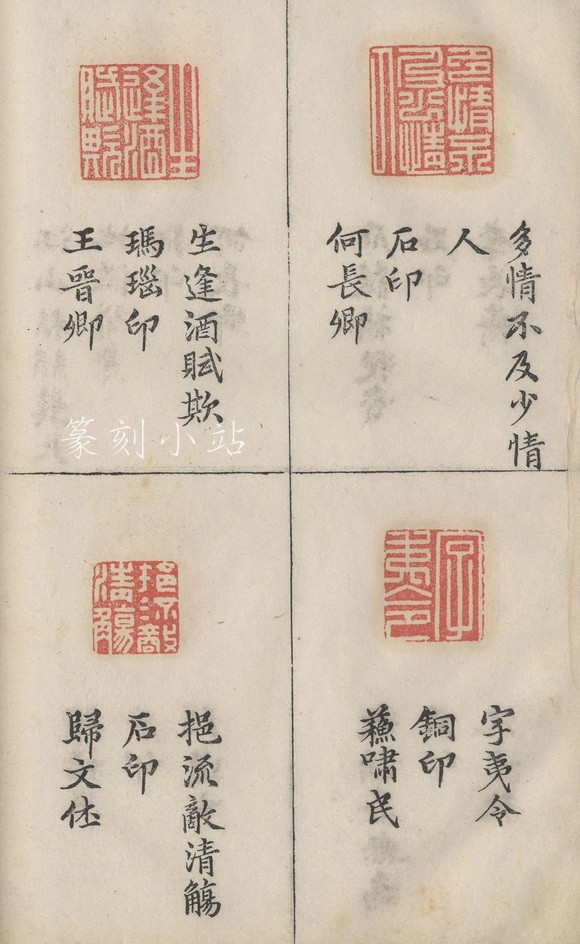 多情不及少情
人
石印
何長卿
生逢酒賦欺
瑪瑙印
王晉卿
字夷令
銅印
蘓嘯民
挹流敵清觴
石印
歸文休
篆刻小站